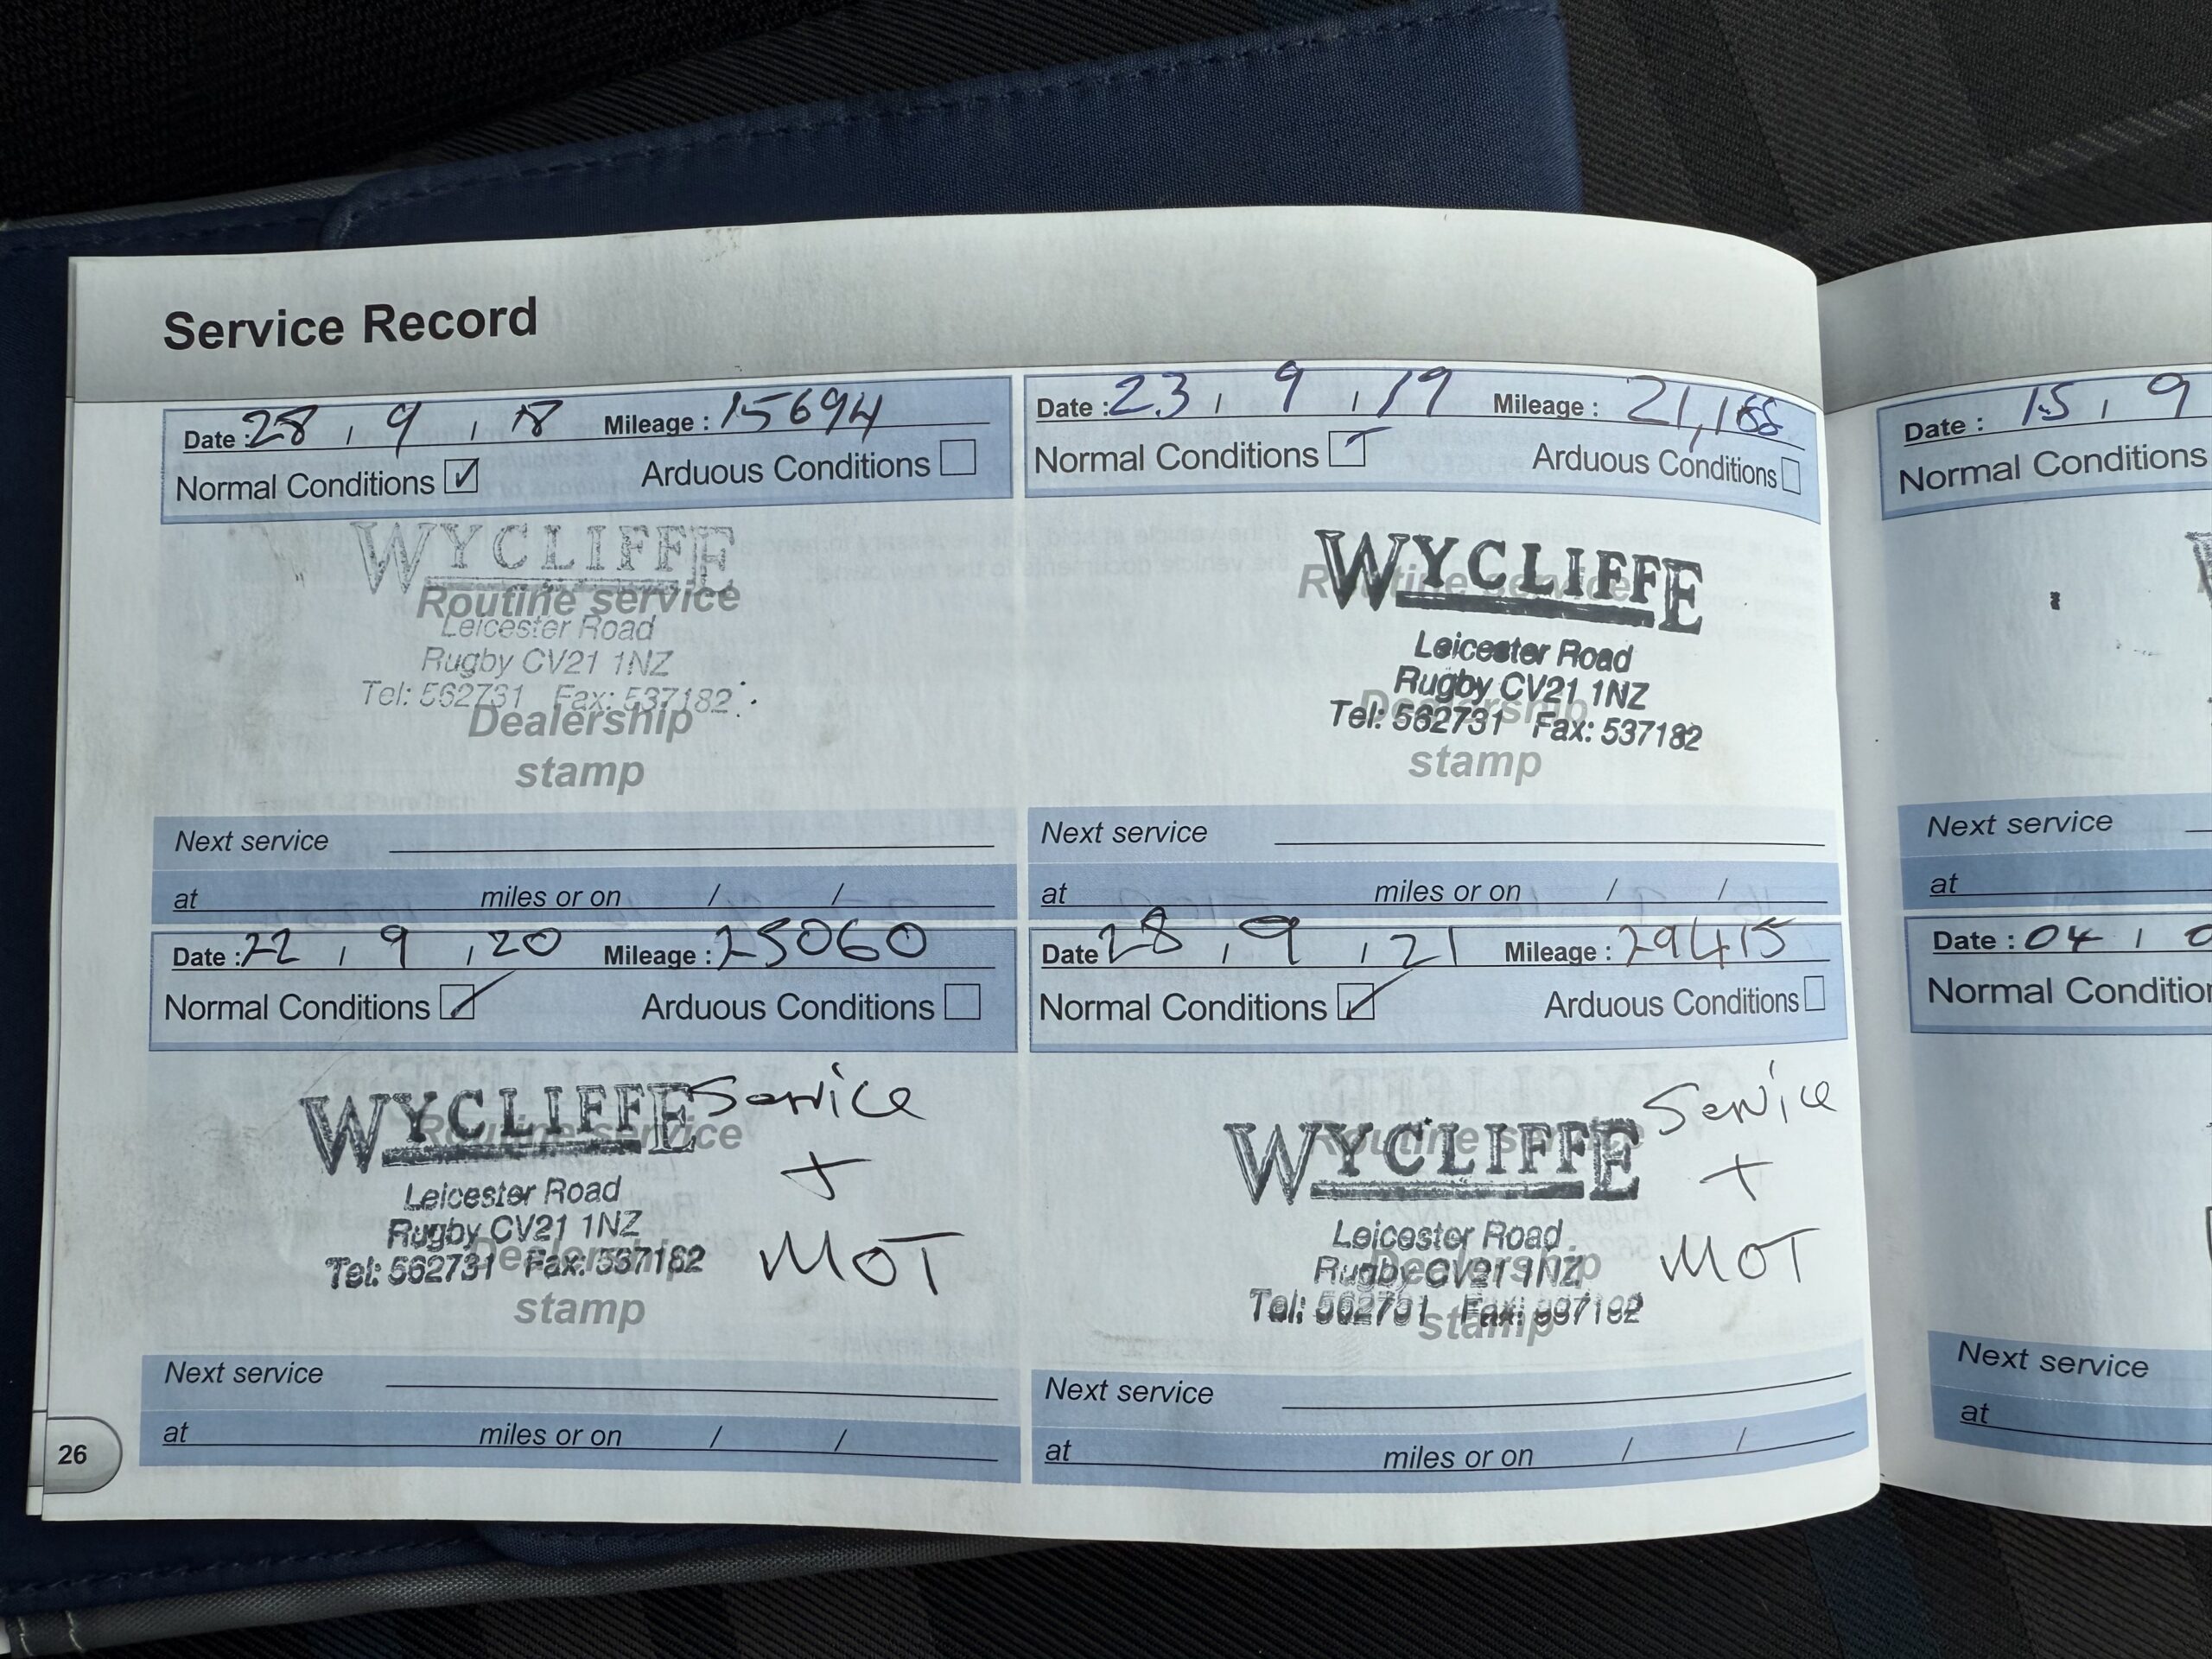 Service Record
Date : 28 / 9 / 18 Mileage : 15694
Normal Conditions Arduous Conditions
WYCLIFFE
Routine service
Leicester Road
Rugby CV21 1NZ
Tel: 562731 Fax: 537182
Dealership
stamp
Next service
at miles or on / /
Date : 23 / 9 / 19 Mileage :
Normal Conditions Arduous Conditions
WYCLIFFE
Routine service
Leicester Road
Rugby CV21 1NZ
Dealership
Tel: 562731 Fax: 537182
stamp
Next service
at miles or on / /
Date : 22 / 9 / 20 Mileage : 25060
Normal Conditions Arduous Conditions
WYCLIFFE Service
Routine service
+
Leicester Road
Rugby CV21 1NZ
Dealership
Tel: 562731 Fax: 537182 MOT
stamp
Next service
at miles or on / /
Date 28 / 9 / 21 Mileage : 29415
Normal Conditions Arduous Conditions
WYCLIFFE Service
Routine service
+
Leicester Road
Rugby CV21 1NZ MOT
Dealership
Tel: 562731 Fax: 537182
stamp
Next service
at miles or on / /
26
Date : 15 / 9
Normal Conditions
Next service
at
Date : 04 /
Normal
Next service
at